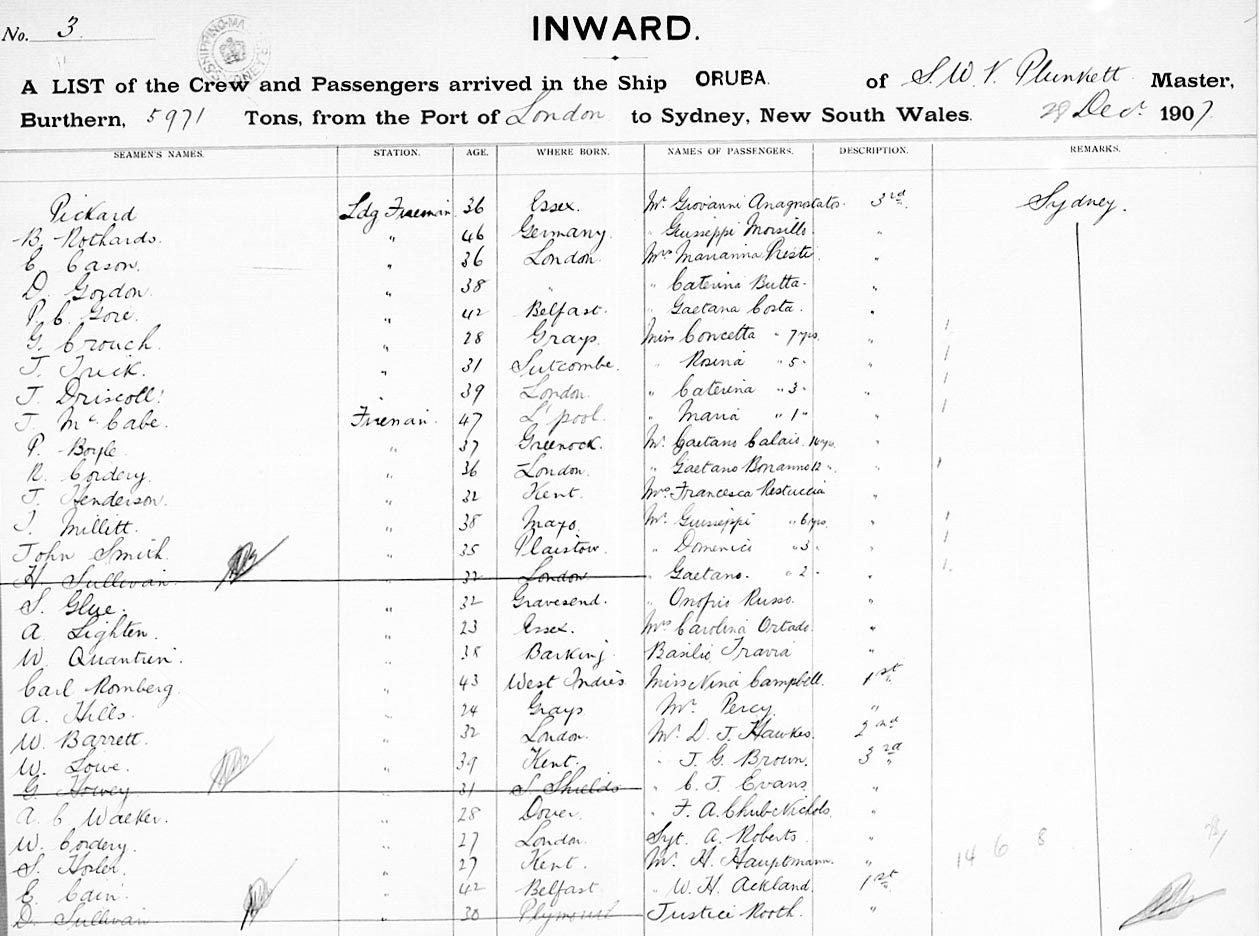 No. 3.
INWARD.
A LIST of the Crew and Passengers arrived in the Ship ORUBA. of S. W. V. Plunkett Master,
Burthern, 5971 Tons, from the Port of London to Sydney, New South Wales. 29 Decr. 1907.
SEAMEN'S NAMES. STATION. AGE. WHERE BORN. NAMES OF PASSENGERS. DESCRIPTION. REMARKS.
Pickard Ldg Fireman 36 Essex. Mr. Giovanni Anagnostatos. 3rd. Sydney.
B. Rothards. " 46 Germany. " Giuseppi Morsillo. "
E. Cason. " 36 London. Mrs Marianna Resti "
D. Gordon. " 38 " " Caterina Butta. "
P. C. Gore. " 42 Belfast. " Gaetana Costa. "
G. Crouch. " 28 Grays. Miss Concetta " 7yrs. "
T. Trick. " 31 Sutcombe. " Rosina " 5 " "
J. Driscoll. " 39 London. " Caterina " 3 " "
J. McCabe. Fireman. 47 L'pool. " Maria " 1 " "
P. Boyle. " 37 Greenock. Mr. Gaetano Calais. 14yrs. "
R. Cordery. " 36 London. " Gaetano Bonanno 12 " "
J. Henderson. " 32 Kent. Mrs. Francesca Restuccia "
J. Millett. " 38 Mayo. Mr. Giuseppi " 6yrs. "
John Smith. " 35 Plaistow. " Domenici " 3 " "
H. Sullivan. 32 London. " Gaetano. " 2 " "
S. Glue. " 32 Gravesend. " Onofrio Russo. "
A. Lighten. " 23 Essex. Mrs Carolina Ortado. "
W. Quantrin. " 38 Barking. Basilio Travia "
Carl Romberg. " 43 West Indies Miss Nina Campbell. 1st.
A. Hills. " 24 Grays Mr. Percy "
W. Barrett. " 32 London. Mr. D. J. Hawkes. 2nd
W. Lowe. " 39 Kent. " J. G. Brown. 3rd
G. Howey " 31 S. Shields " C. J. Evans "
A. C. Walker. " 28 Dover. " F. A. Chubb Nichols. "
W. Cordery. " 27 London. Sgt. A. Roberts. "
S. Hosler. " 27 Kent. Mr. H. Hauptmann. " 14 6 8
E. Cain. " 42 Belfast " W. H. Ackland. 1st.
D. Sullivan " 30 Plymouth Justice Rooth. "